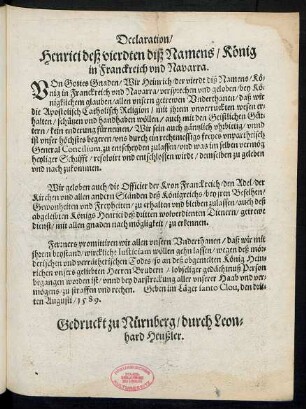 Declaration/
Henrici deß vierdten diß Namens/ König
in Franckreich vnd Navarra.
VOn Gottes Gnaden/ Wir Heinrich/ der vierdt diß Namens/ Kö-
nig in Franckreich vnd Navarra/ versprechen vnd geloben/ bey Kö-
niglichem glauben/ allen vnsern getrewen Vnderthanen/ daß wir
die Apostolisch Catholisch Religion/ mit jhrem vnverruckten wesen er-
halten/ schützen vnd handhaben wöllen/ auch mit den Geistlichen Gü-
tern/ kein enderung fürnemen/ Wir sein auch gäntzlich vhrbütig/ vnnd
ist vnser höchstes begeren/ vns durch ein rechtmessigs freyes vnpartheisch
General Concilium, zu entscheyden zulassen/ vnnd was im selben vermög
heyliger Schrifft/ resoluirt vnd entschlossen wirdt/ demselben zu geleben
vnd nach zukommen.
Wir geloben auch die Officier der Kron Franckreich/ den Adel/ der
Kirchen vnd allen andern Ständen deß Königreichs/ bey jren Beselhen/
Gewonheiten vnd Freyheiten/ zu erhalten vnd bleiben zulassen/ auch deß
abgeleibten Königs Henrici deß dritten wolverdienten Dienern/ getrewe
dienst/ mit allen gnaden nach mögligkeit/ zu erkennen.
Ferners promittiren wir allen vnsern Vnderthanen/ daß wir mit
jhrem beystand/ wirckliche Iustitiam wöllen gehn lassen/ wegen deß mör-
derischen vnd verrätherischen Todes/ so an deß abgemelten König Hein-
richen vnsers geliebten Herren Brudern/ lobseliger gedächtnuß Person
begangen worden ist/ vnnd bey darstreckung aller vnserer Haab vnd ver-
mögens/ zu straffen vnd rechen. Geben im Läger sanct Clou, den drit-
ten Augusti/ 1589.
Gedruckt zu Nürnberg/ durch Leon-
hard Heußler.